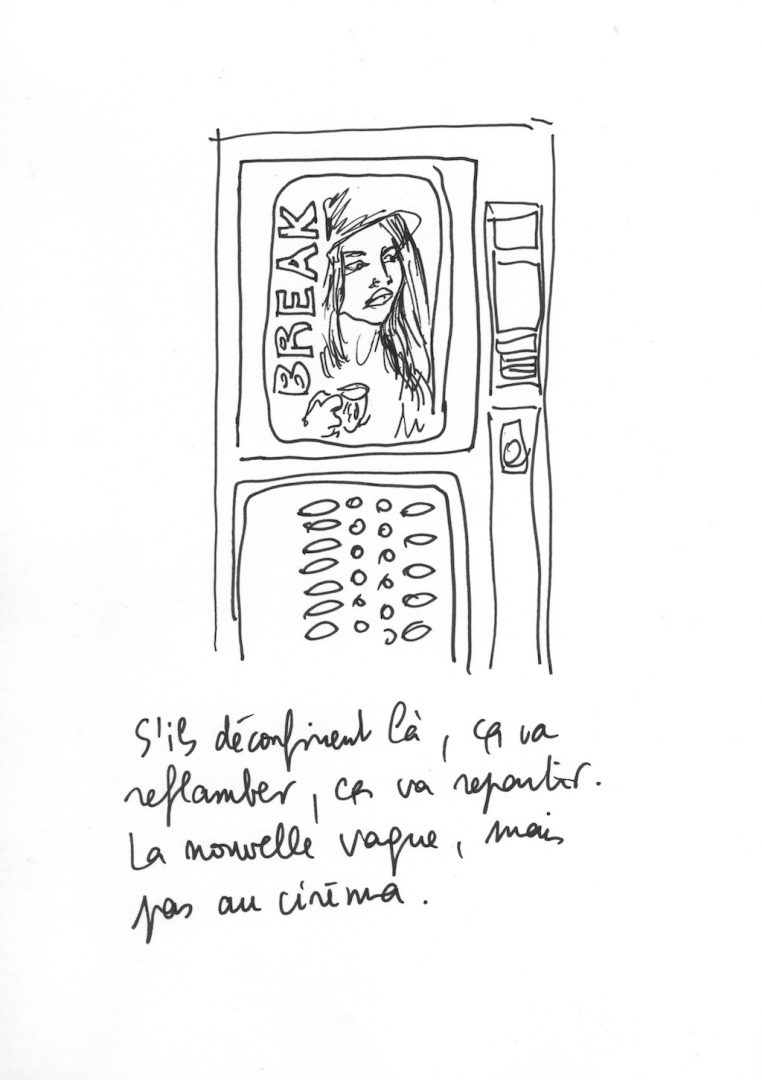 BREAK
S'ils déconfinent là, ça va
reflamber, ça va repartir.
La nouvelle vague, mais
pas au cinéma.